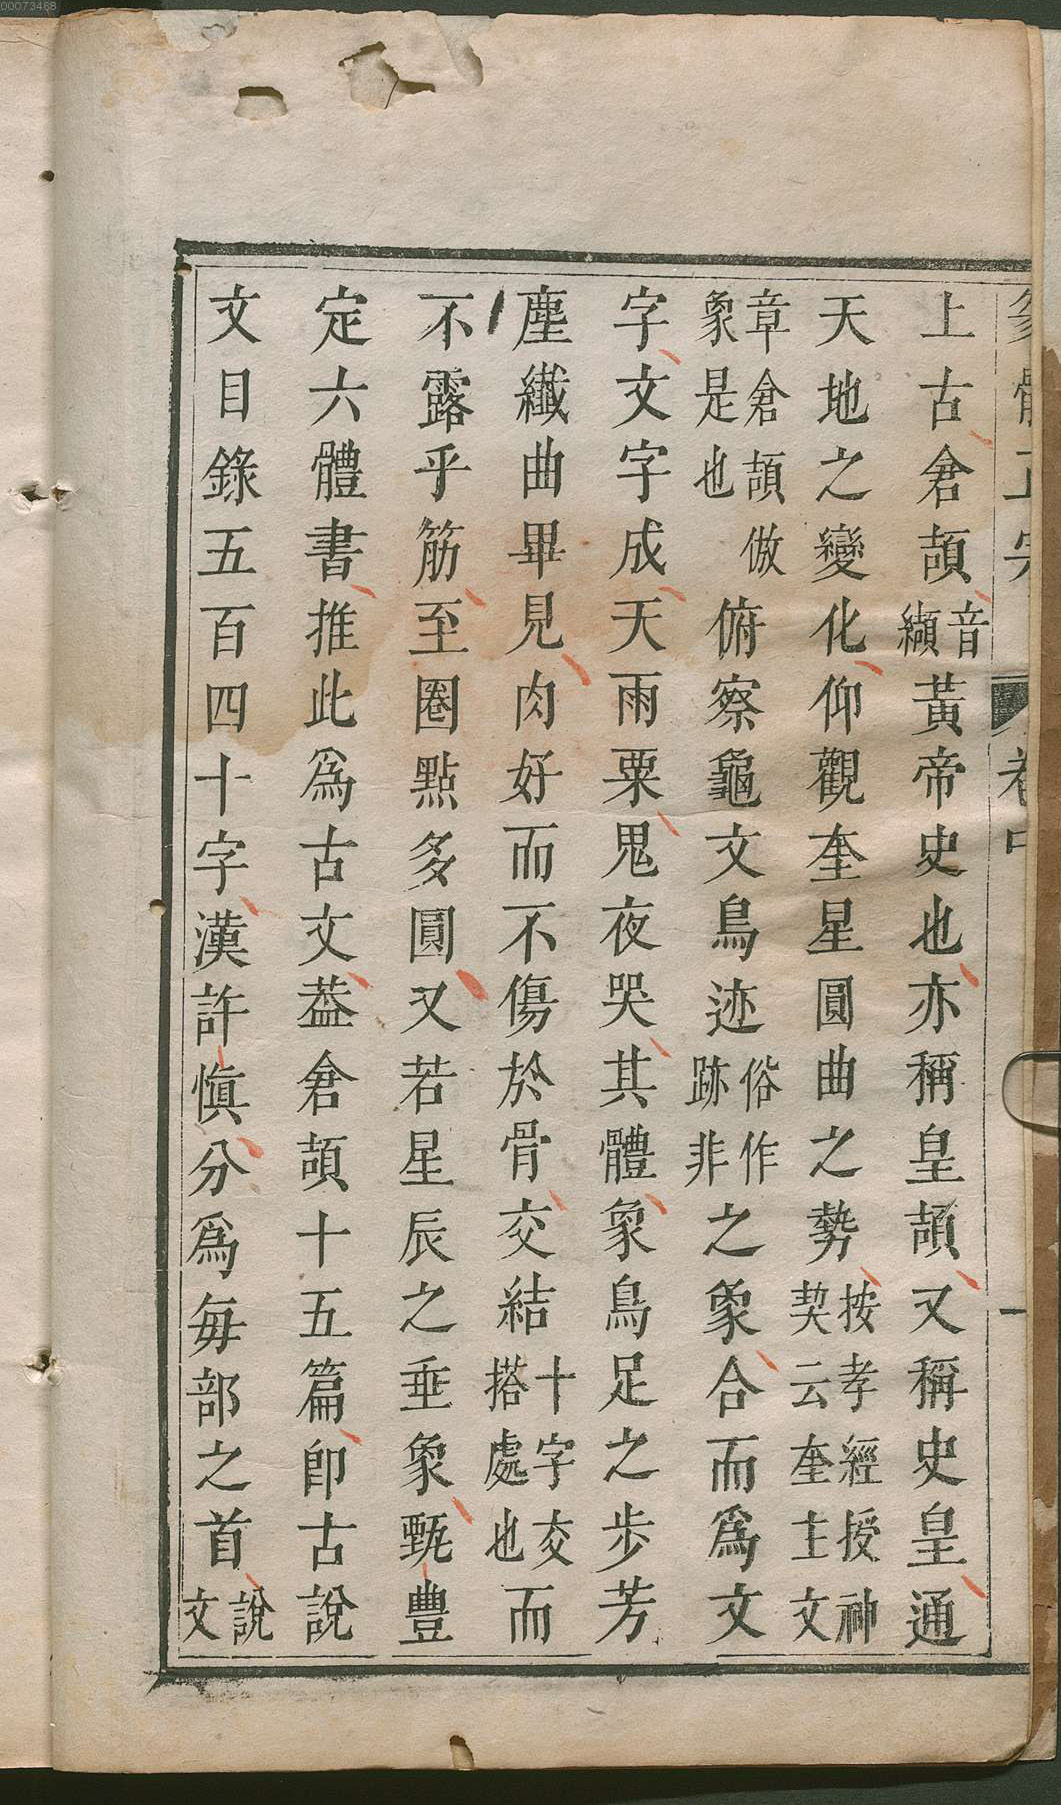 00073468
上古倉頡音纈黃帝史也亦稱皇頡又稱史皇通
天地之變化仰觀奎星圓曲之勢按孝經授神契云奎主文
章倉頡倣象是也俯察龜文鳥迹俗作跡非之象合而爲文
字文字成天雨粟鬼夜哭其體象鳥足之步芳
塵纖曲畢見肉好而不傷於骨交結十字交搭處也而
不露乎筋至圈點多圓又若星辰之垂象甄豐
定六體書推此爲古文葢倉頡十五篇卽古說
文目錄五百四十字漢許愼分爲每部之首說文